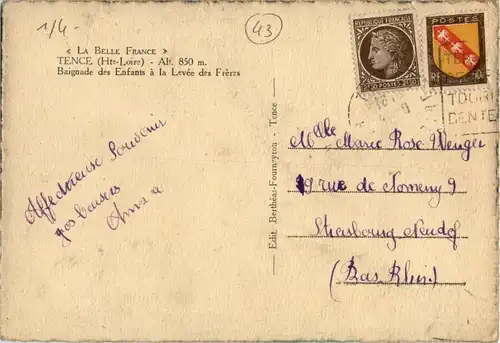 1/4-
43
« LA BELLE FRANCE »
TENCE (Hte-Loire) - Alt. 850 m.
Baignade des Enfants à la Levée des Frères
REPUBLIQUE FRANÇAISE
POSTES
RF
TOURI
DENTE
Edit. Berthéas-Fourneyron - Tence
Affectueux Souvenir
gos baisers
Anna
Mlle Marie Rose Wenger
19 rue de Nomeny 9
Strasbourg Neudof
(Bas Rhin)